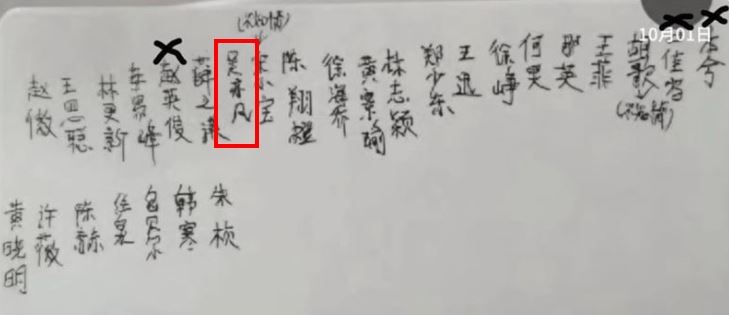 10月01日
赵薇
王思聪
林更新
赵英俊
薛之谦
吴亦凡
(不知情)
宋小宝
陈翔
徐海乔
黄景瑜
林志颖
郑少东
王迅
徐峥
何炅
那英
王菲
胡歌
(不知情)
黄晓明
许薇
陈赫
任泉
包贝尔
韩寒
朱桢